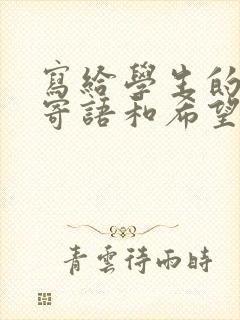 寫給學生的
寄語和希望
青雲待雨時